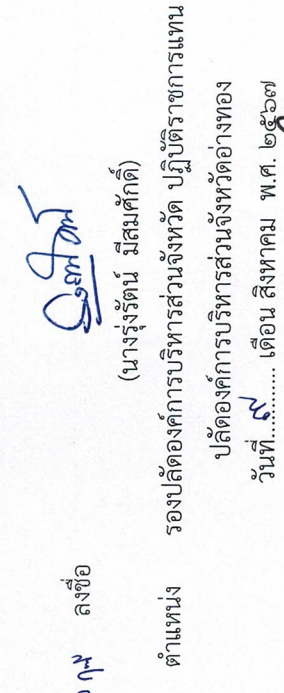 ลงชื่อ
(นางรุ่งรัตน์ มีสมศักดิ์)
ตำแหน่ง รองปลัดองค์การบริหารส่วนจังหวัด ปฏิบัติราชการแทน
ปลัดองค์การบริหารส่วนจังหวัดอ่างทอง
วันที่............ เดือน สิงหาคม พ.ศ. ๒๕๖๗